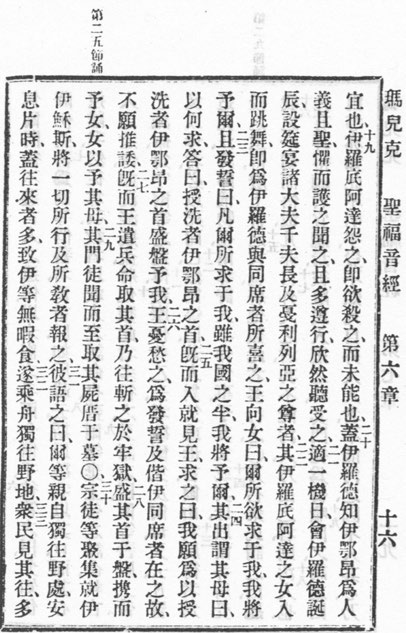 瑪兒克 聖福音經 第六章 十六
宜也十九伊羅底阿達怨之卽欲殺之而未能也二十蓋伊羅德知伊鄂昂爲人
義且聖懼而護之聞之且多遵行欣然聽受之二一適一機日會伊羅德誕
辰設筵宴諸大夫千夫長及戞利列亞之尊者二二其伊羅底阿達之女入
而跳舞卽爲伊羅德與同席者所喜之王向女曰爾所欲求于我我將
予爾二三且發誓曰凡爾所求于我雖我國之半我將予爾二四其出謂其母曰
以何求答曰授洗者伊鄂昂之首二五旣而入就見王求之曰我願爲以授
洗者伊鄂昂之首盛盤予我二六王憂愁之爲發誓及偕伊同席者在之故
不願推諉二七旣而王遣兵命取其首乃往斬之於牢獄二八盛其首于盤携而
予女女以予其母二九其門徒聞而至取其屍厝于墓〇三十宗徒等聚集就伊
伊穌斯將一切所行及所敎者報之三一彼語之曰爾等親自獨往野處安
息片時蓋往來者多致伊等無暇食三二遂乘舟獨往野地三三衆民見其往多
第二五節誦